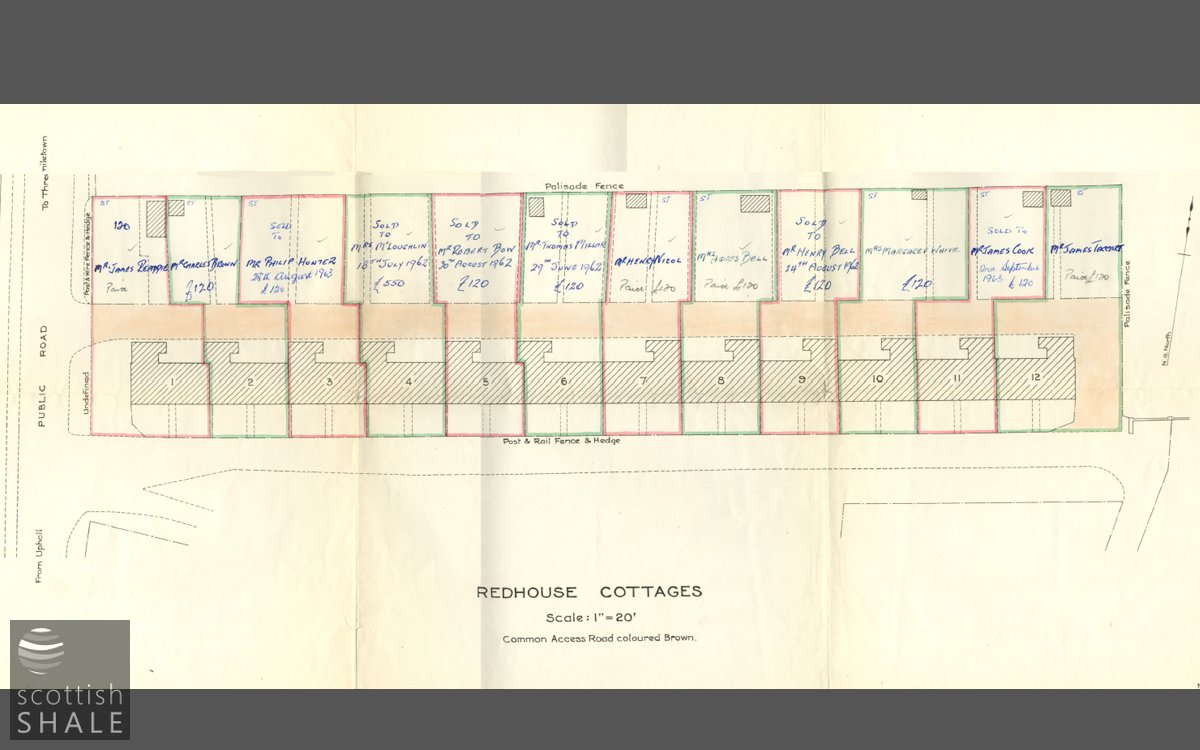 To Threemiletown
PUBLIC ROAD
From Uphall
Post & Wire Fence & Hedge
Undefined
Palisade Fence
ST
120
Mr James
Paid
ST
Mr Charles Brown
£120
ST
SOLD
To
Mr Philip Hunter
28th August 1963
£120
SOLD
TO
Mrs McLoughlin
18th July 1962
£550
SOLD
TO
Mr Robert Bow
30th August 1962
£120
SOLD
TO
Mr Thomas Millar
29th June 1962
£120
ST
Mr Henry Nicol
Paid £120
ST
Mrs Bell
Paid £120
SOLD
TO
Mr Henry Bell
24th August 1962
£120
ST
Mrs Margaret White
£120
ST
SOLD TO
Mr James Cook
2nd September
1963 £120
ST
Mr James Taggart
Paid £120
Palisade Fence
N.G. North
1
2
3
4
5
6
7
8
9
10
11
12
Post & Rail Fence & Hedge
REDHOUSE COTTAGES
Scale: 1"=20'
Common Access Road coloured Brown.
scottish
SHALE